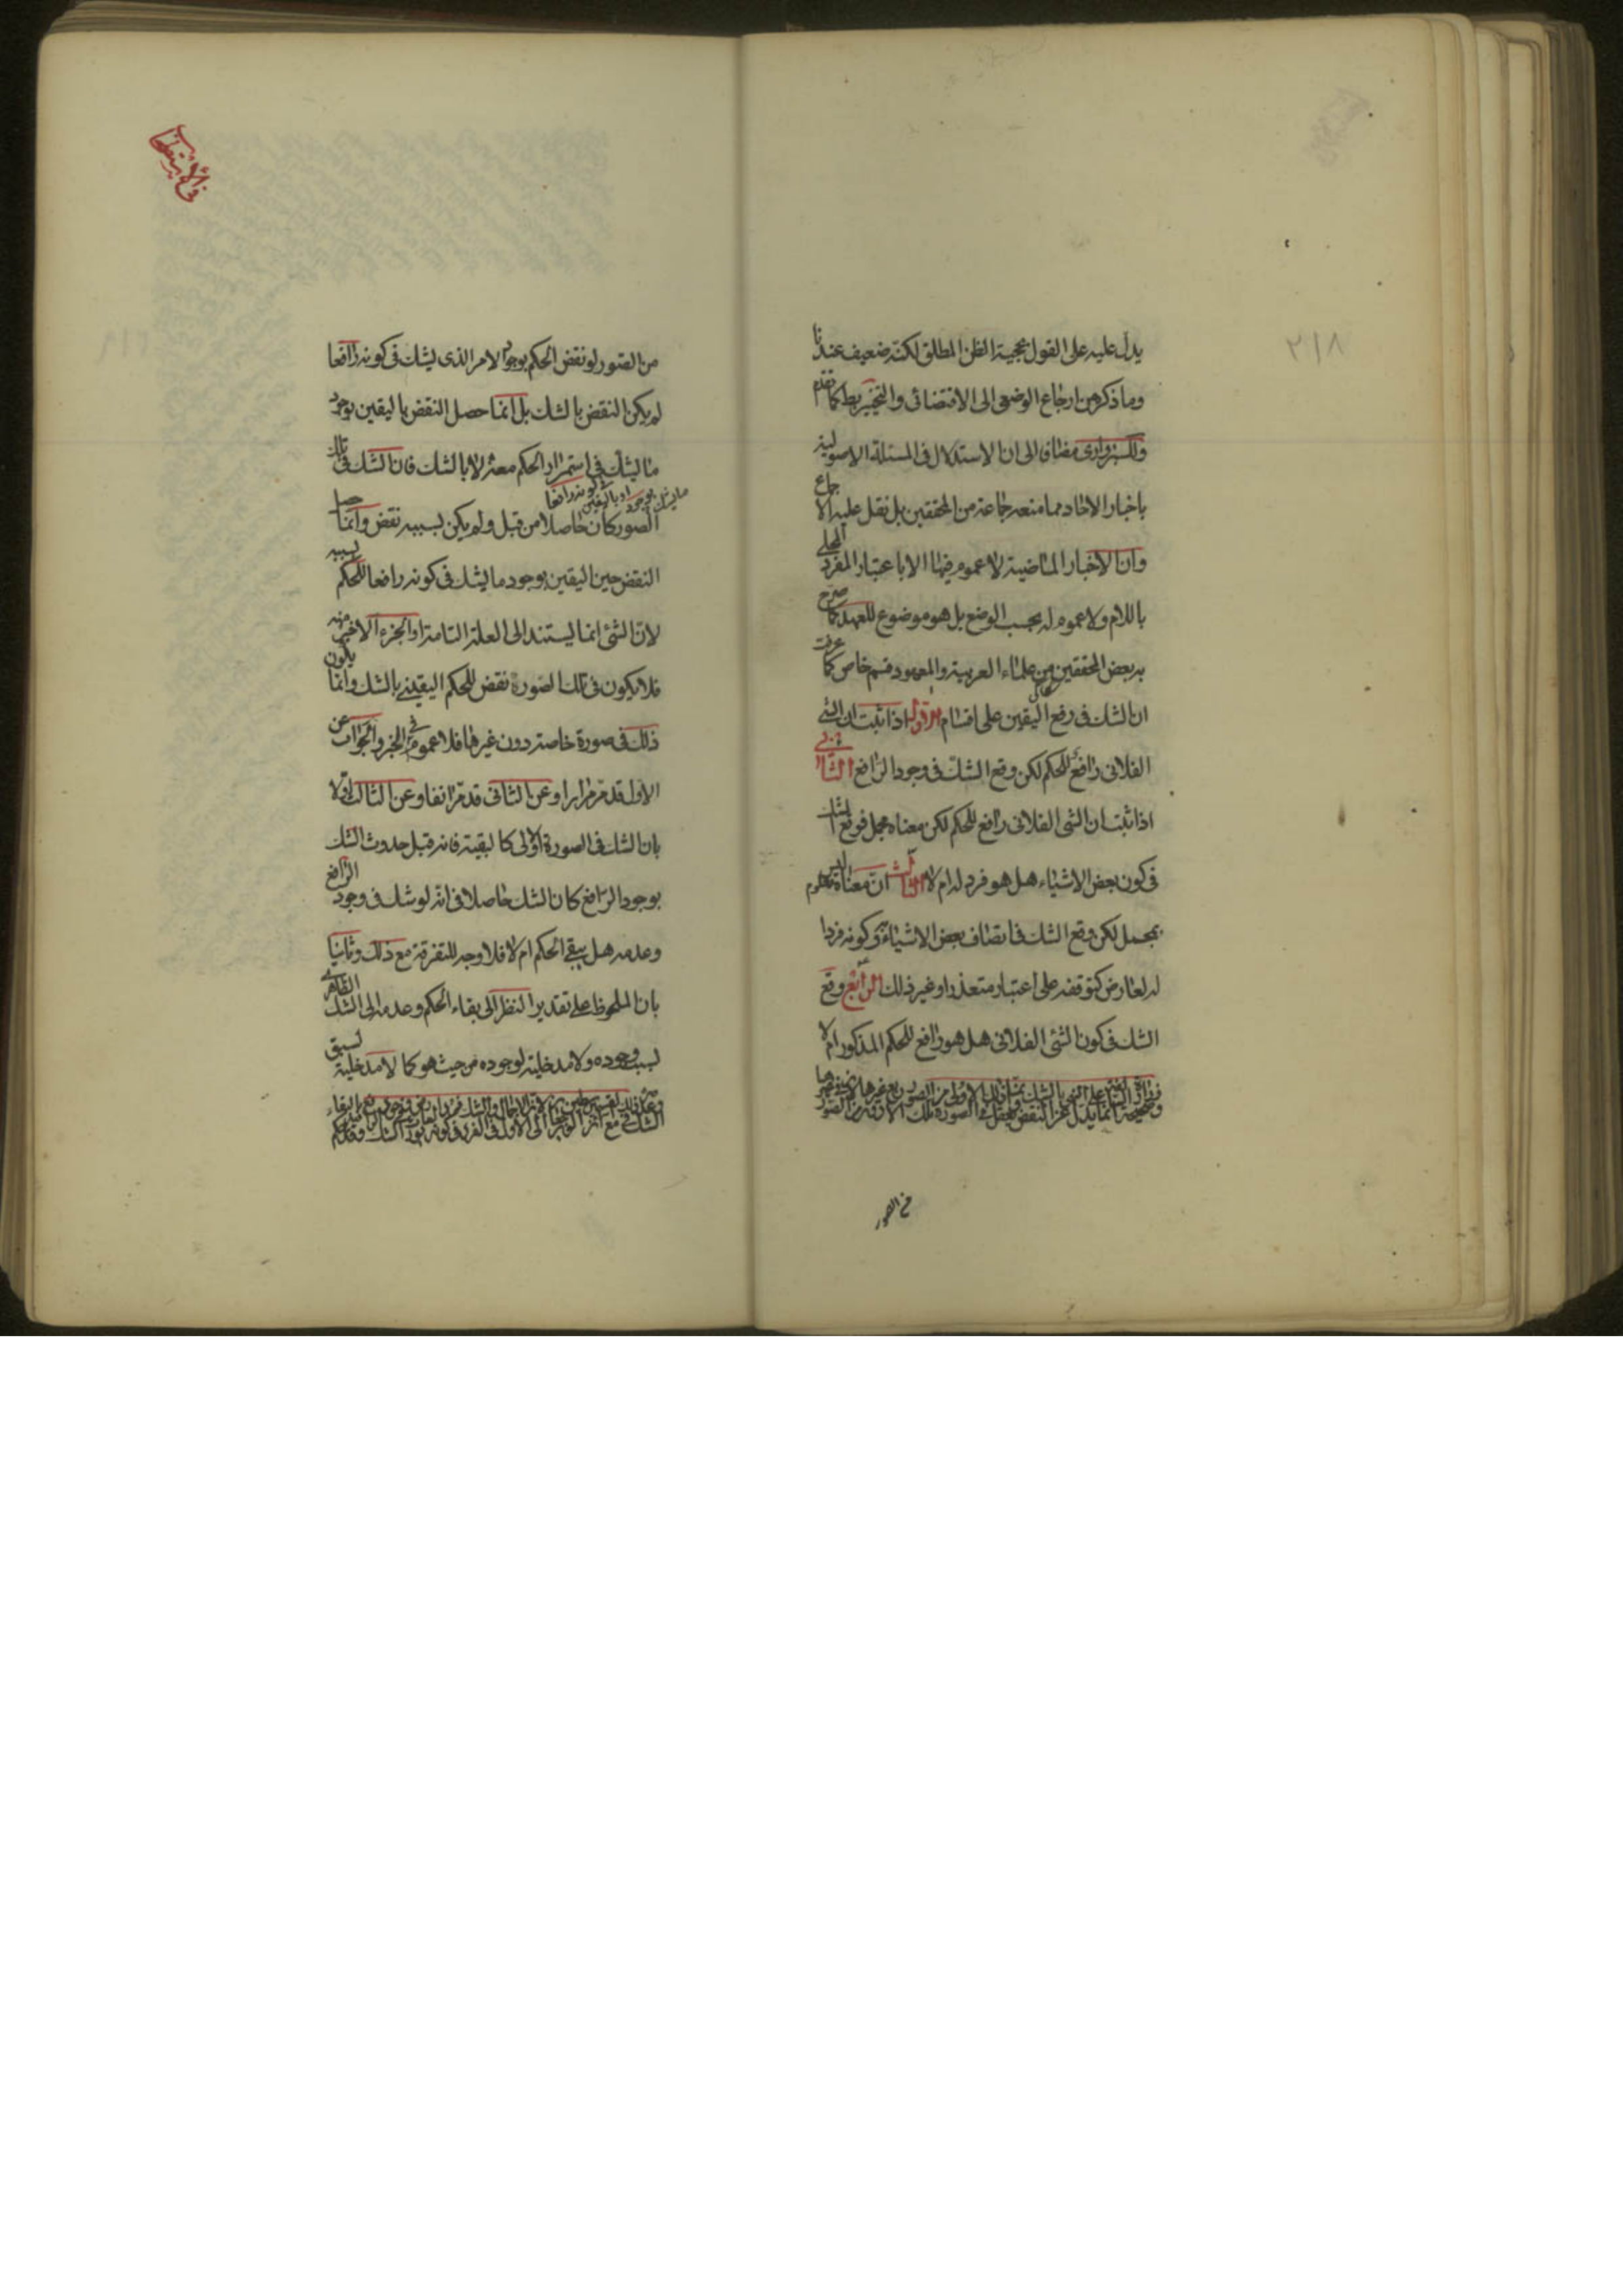 ٢١٨
يدل عليه على القول بحجية الظن المطلق لكنه ضعيف عندنا
وما ذكره من ارجاع الوضعى الى الاقتضائى والتخييرى كما تقدم
وللسبزوارى مضافا الى ان الاستدلال فى المسئلة الاصولية
باخبار الاحاد مما منعه جماعة من المحققين بل نقل عليه الاجماع
وان الاخبار الماضية لا عموم فيها الا باعتبار المفرد المحلى
باللام ولا عموم له بحسب الوضع بل هو موضوع للعهد كما صرح
به بعض المحققين من علماء العربية والمعهود قسم خاص كما عرفت
ان الشك فى رفع اليقين على اقسام الاول اذا ثبت ان الشئ
الفلانى رافع للحكم لكن وقع الشك فى وجود الرافع الثانى
اذا ثبت ان الشئ الفلانى رافع للحكم لكن معناه مجمل فوقع الشك
فى كون بعض الاشياء هل هو فرد له ام لا الثالث ان معناه معلوم ليس
بمجمل لكن وقع الشك فى اتصاف بعض الاشياء به وكونه فردا
له لعارض كتوقفه على اعتبار متعذر او غير ذلك الرابع وقع
الشك فى كون الشئ الفلانى هل هو رافع للحكم المذكور ام لا
من الصور
فى الاستصحاب
من الصور لو نقض الحكم بوجود الامر الذى يشك فى كونه رافعا
لم يكن النقض بالشك بل انما حصل النقض باليقين بوجود
ما يشك فى استمرار الحكم معه لا بالشك فان الشك فى تلك
الصور كان حاصلا من قبل ولم يكن بسببه نقض وانما حصل
النقض حين اليقين بوجود ما يشك فى كونه رافعا للحكم بسببه
لان الشئ انما يستند الى العلة التامة او الجزء الاخير منه
فلا يكون فى تلك الصورة نقض للحكم اليقينى بالشك وانما يكون
ذلك فى صورة خاصة دون غيرها فلا عموم فى الخبر والجواب عن
الاول قد مر مرارا وعن الثانى قد مر انفا وعن الثالث اولا
بان الشك فى الصورة الاولى كالبقية فانه قبل حدوث الشك
بوجود الرافع كان الشك حاصلا فى انه لو شك فى وجود الرافع
وعدمه هل يبقى الحكم ام لا فلا وجه للتفرقة مع ذلك وثانيا
بان الملحوظ على تقدير النظر الى بقاء الحكم وعدمه الى الشك الظاهر
بسبب وجوده ولا مدخلية لوجوده من حيث هو كما لا مدخلية لسبق